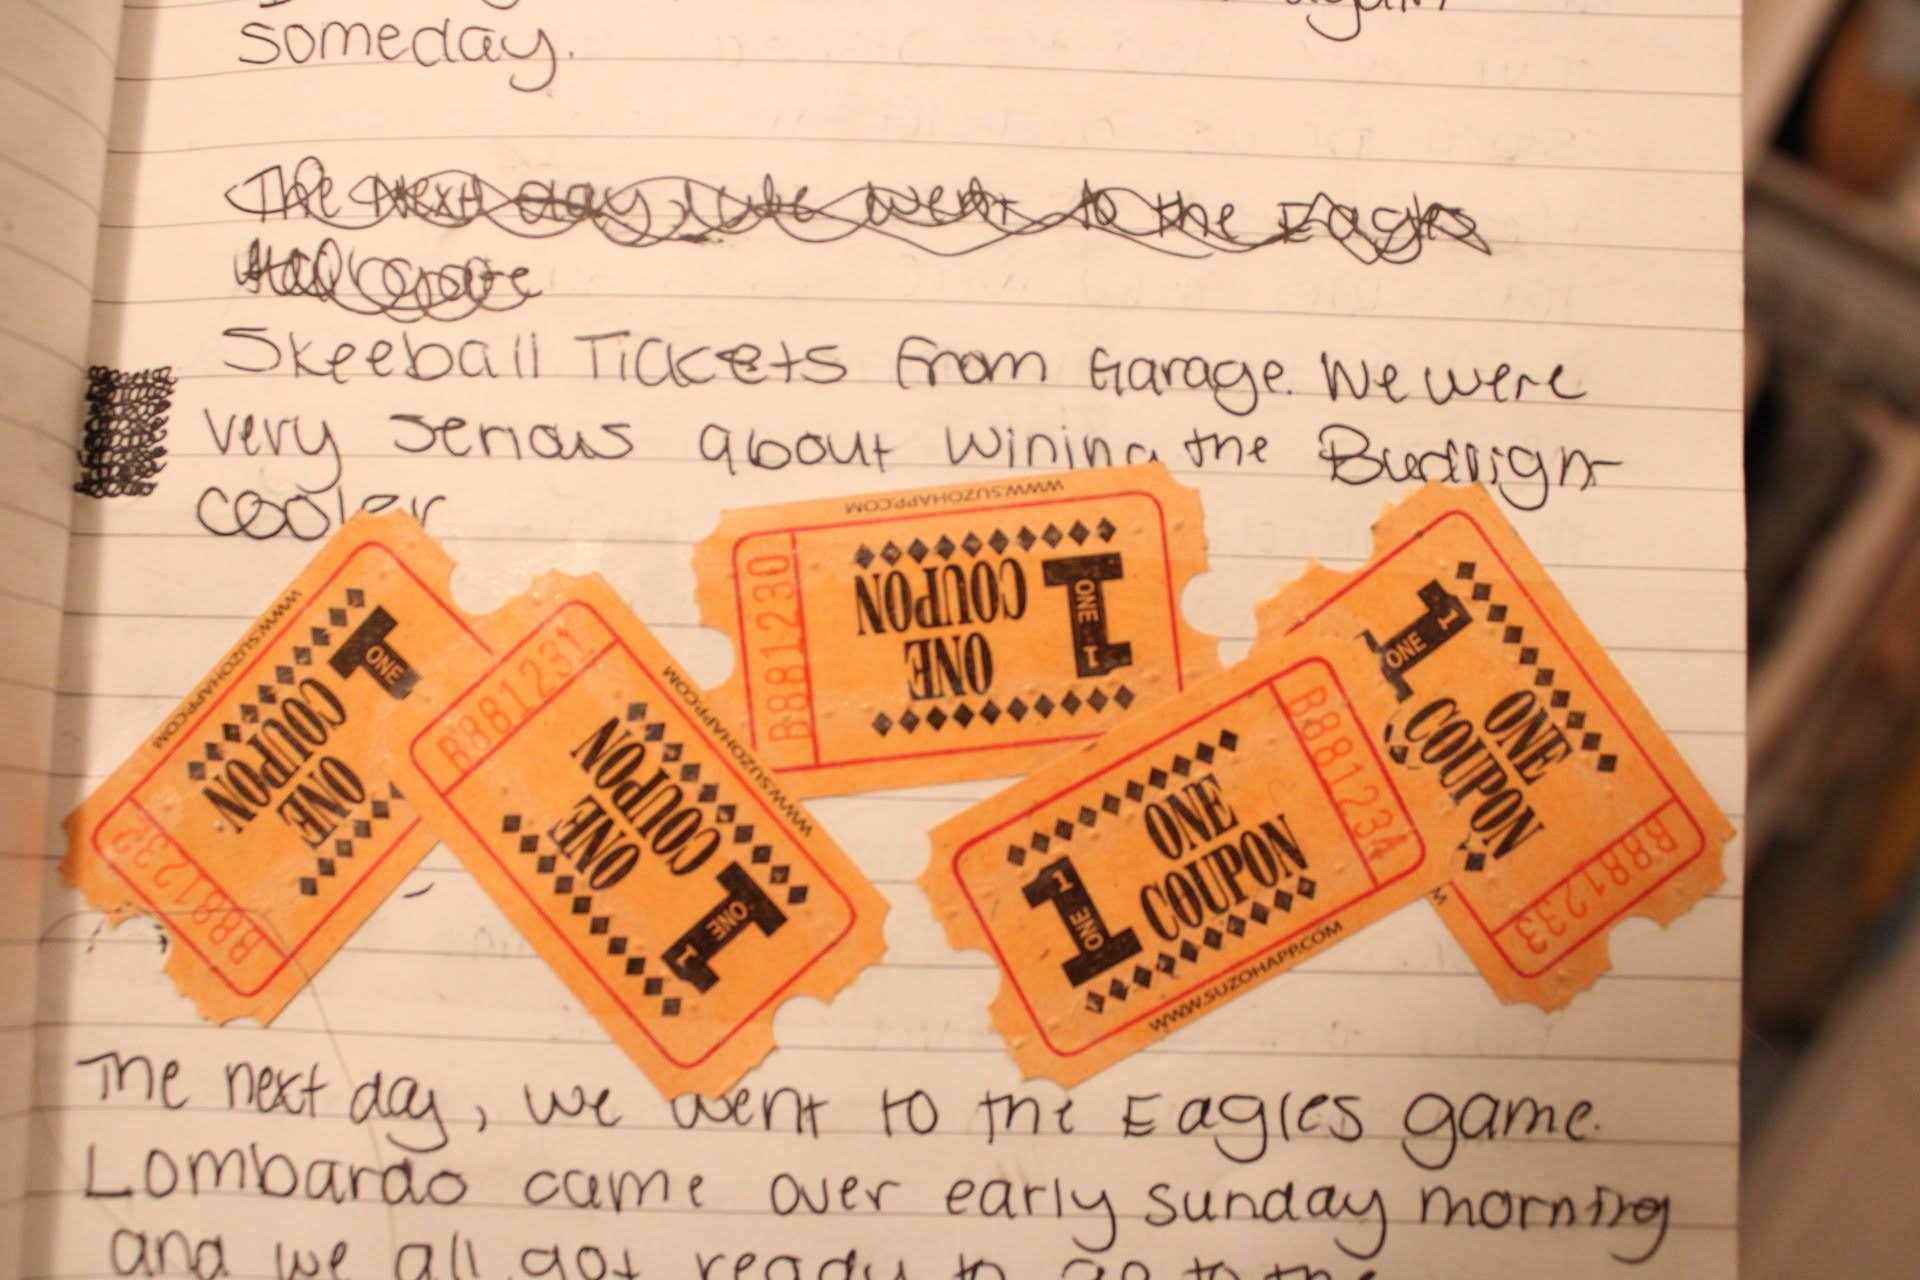 again
someday.
The next day, we went to the Eagles
Skeeball Tickets From Garage. We were
very serious about wining the Budlight
cooler
WWW.SUZOHAPP.COM
ONE
ONE
COUPON
B881232
WWW.SUZOHAPP.COM
B881231
ONE
COUPON
1 ONE
WWW.SUZOHAPP.COM
B881230
ONE
COUPON
ONE 1
B881234
ONE
COUPON
1 ONE
WWW.SUZOHAPP.COM
1 ONE
ONE
COUPON
B881233
W
The next day, we went to the Eagles game.
Lombardo came over early sunday morning
and we all got ready to go to the